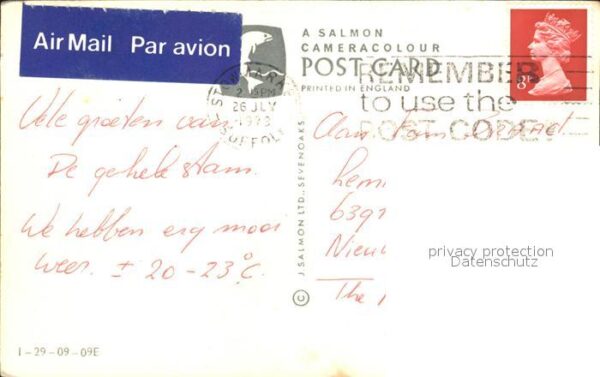 Air Mail Par avion
A SALMON
CAMERACOLOUR
POST CARD
PRINTED IN ENGLAND
REMEMBER
to use the
POST CODE
STOWMARKET
2 15PM
26 JLY
1973
SUFFOLK
8P
Vele groeten van
De gehele stam.
We hebben erg mooi
weer. ± 20 - 23°C.
© J. SALMON LTD., SEVENOAKS
Fam.
6391
Nieuw
The
privacy protection
Datenschutz
1 - 29 - 09 - 09E